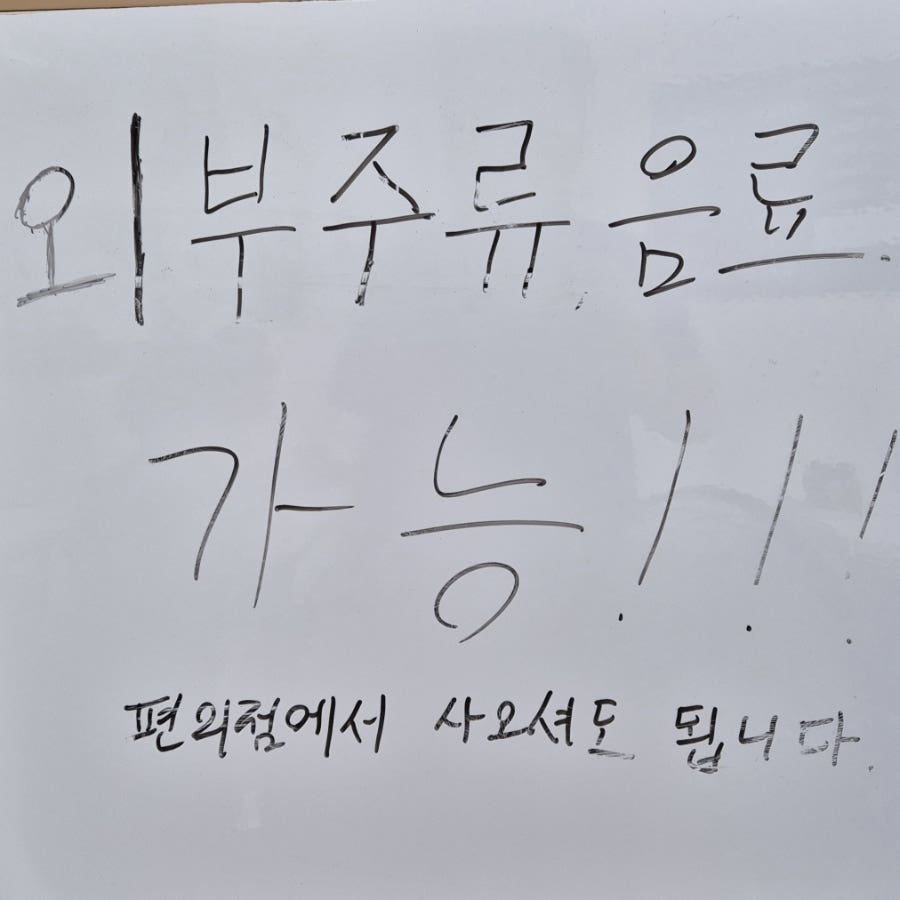 외부주류, 음료.
가능!!!
편의점에서 사오셔도 됩니다.